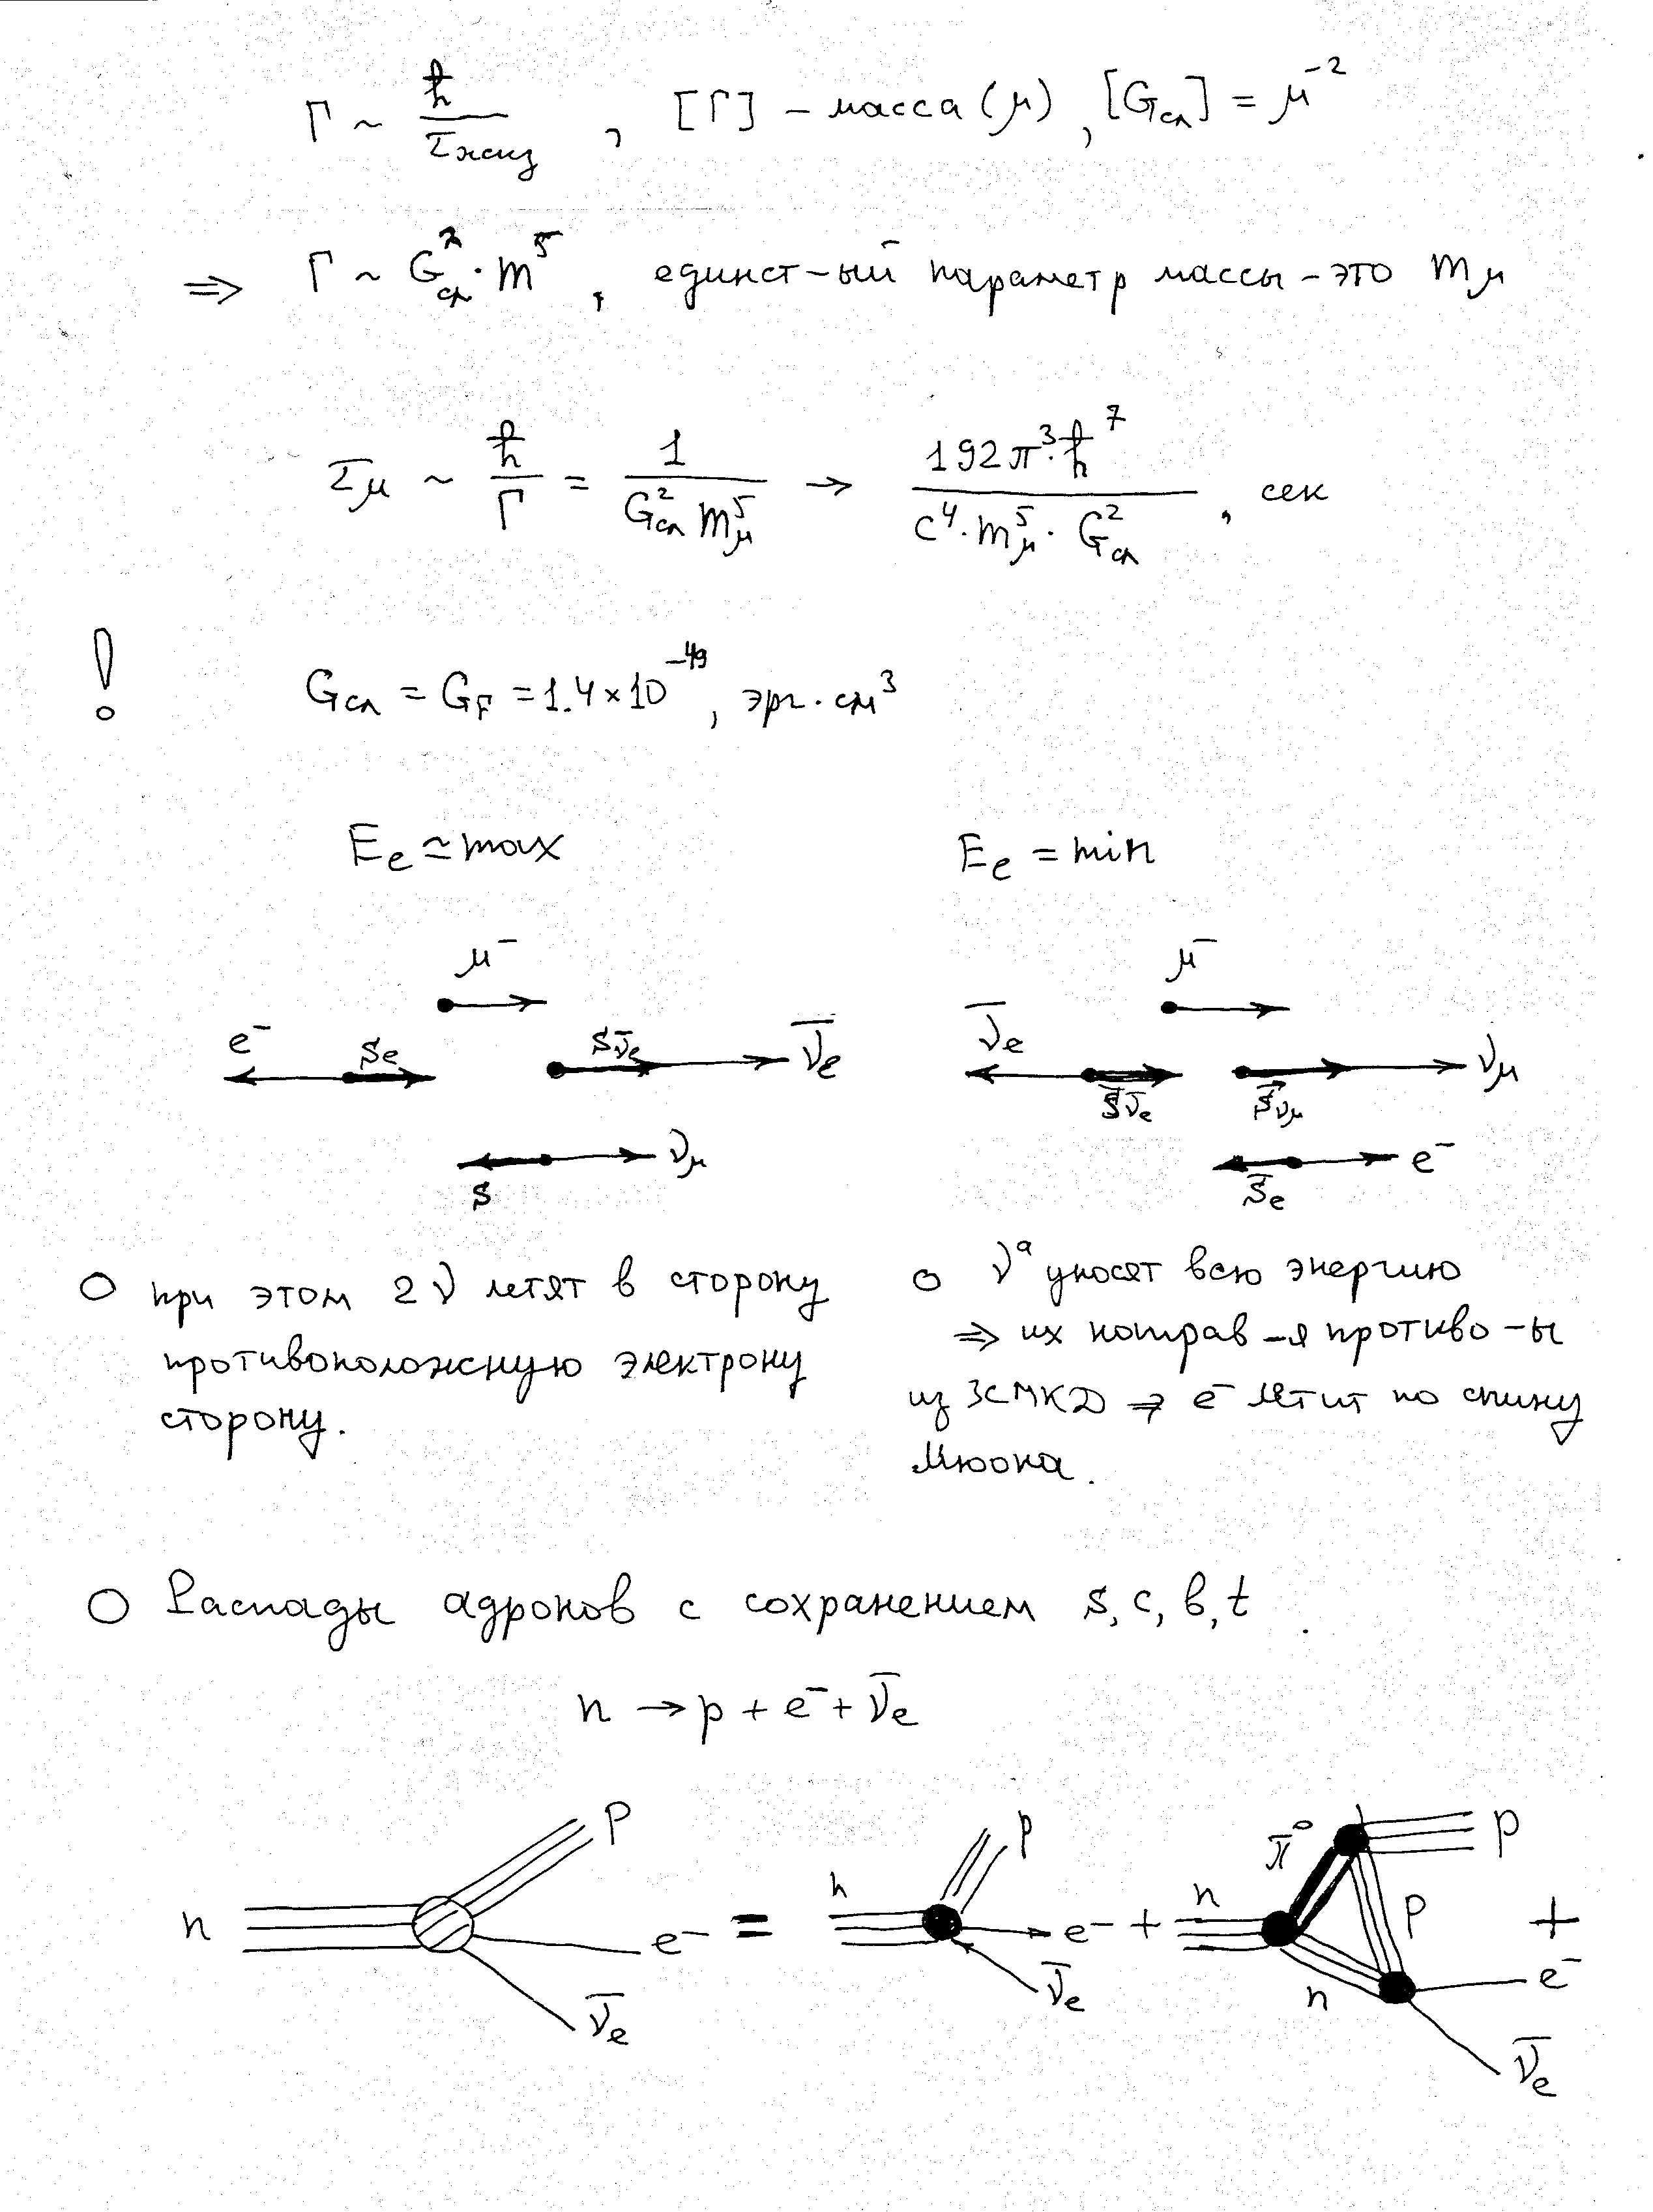 Γ ~ ħ / τжиз , [Γ] – масса (μ), [Gсл] = μ⁻²
⇒ Γ ~ G²сл · m⁵ , единст-ый параметр массы – это mμ
τμ ~ ħ / Γ = 1 / (G²сл m⁵μ) → 192π³·ħ⁷ / (c⁴·m⁵μ·G²сл) , сек
! Gсл = GF = 1.4×10⁻⁴⁹, эрг·см³
Ee ≃ max Ee = min
μ⁻ μ⁻
e⁻ Se Sν̄e ν̄e ν̄e Sν̄e Sνμ νμ
S νμ Se e⁻
○ при этом 2ν летят в сторону
противоположную электрону
сторону.
○ νᵃ уносят всю энергию
⇒ их направ-я противо-ы
из ЗСМКД ⇒ e⁻ летит по спину
Мюона.
○ Распады адронов с сохранением s, c, b, t.
n → p + e⁻ + ν̄e
n p e⁻ ν̄e = n p e⁻ ν̄e + n π⁰ p p n e⁻ ν̄e +